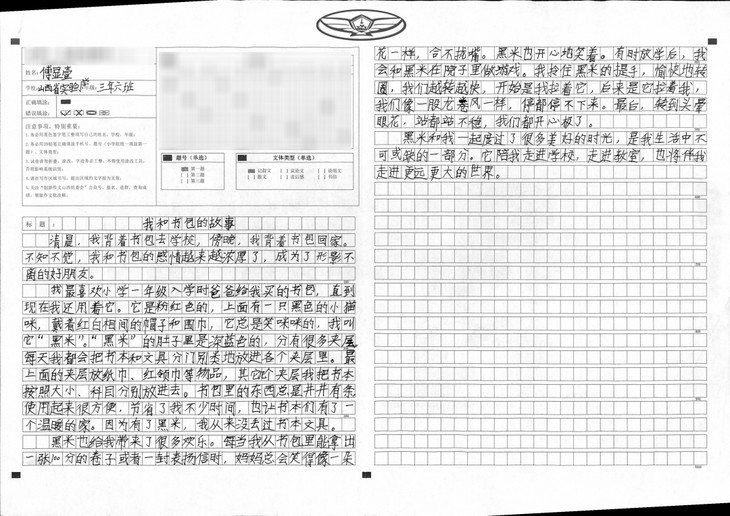 姓名: 傅显壹
学校: 山西省实验 年级: 三年六班
正确填涂:
错误填涂:
注意事项, 特别重要:
题号 (单选)
第一题
第二题
第三题
文体类型 (单选)
记叙文 议论文 说明文
散文 读后感 书信
标 题: 我和书包的故事
清晨,我背着书包去学校,傍晚,我背着书包回家。
不知不觉,我和书包的感情越来越浓厚了,成为了形影不
离的好朋友。
我最喜欢小学一年级入学时爸爸给我买的书包,直到
现在我还用着它。它是粉红色的,上面有一只黑色的小猫
咪,戴着红白相间的帽子和围巾,它总是笑咪咪的,我叫
它“黑米”。“黑米”的肚子里是深蓝色的,分有很多夹层
每天我都会把书本和文具分门别类地放进各个夹层里。最
上面的夹层放纸巾、红领巾等物品,其它个夹层我把书本
按照大小、科目分别放进去。书包里的东西总是井井有条
使用起来很方便,节省了我不少时间,也让书本们有了一
个温暖的家。因为有了黑米,我从来没去过书本文具。
黑米也给我带来了很多欢乐。每当我从书包里能拿出
一张100分的卷子或者一封表扬信时,妈妈总会笑得像一朵
花一样,合不拢嘴。黑米也开心地笑着。有时放学后,我
会和黑米在院子里做游戏。我拎住黑米的提手,愉快地转
圈,我们越转越快,开始是我拉着它,后来是它拉着我,
我们像一股龙卷风一样,停都停不下来。最后,转到头晕
眼花,站都站不稳,我们都开心极了。
黑米和我一起度过了很多美好的时光,是我生活中不
可或缺的一部分。它陪我走进学校,走进教室,也将伴我
走进更远更大的世界。